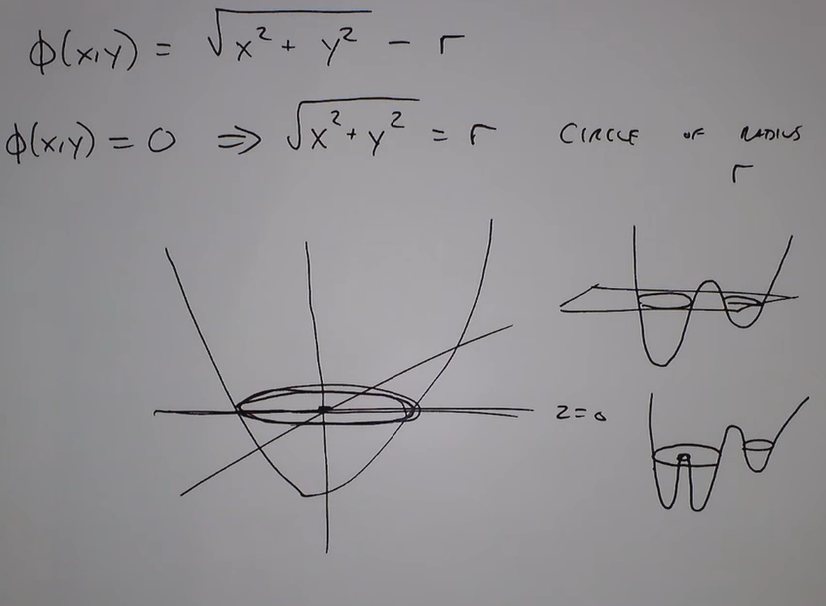 ϕ(x,y) = √(x² + y²) - r
ϕ(x,y) = 0 ⇒ √(x² + y²) = r CIRCLE OF RADIUS
r
z=0